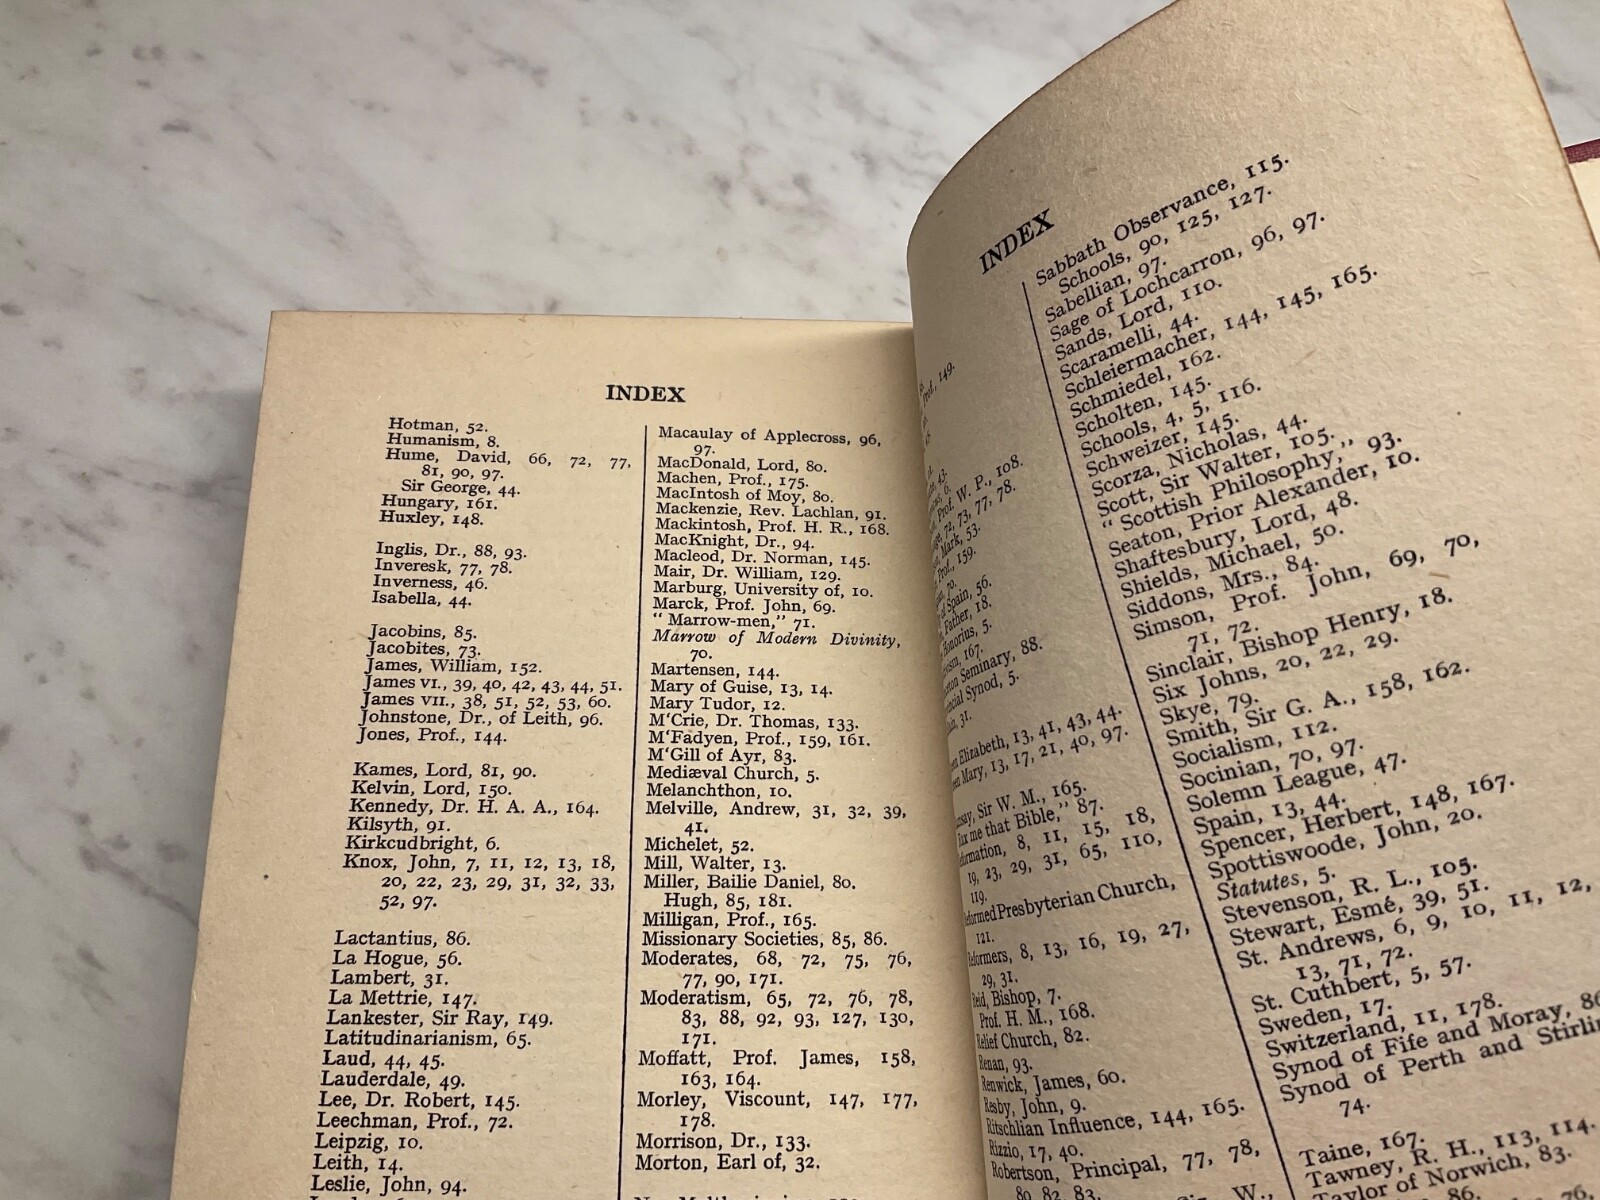 INDEX
Hotman, 52.
Humanism, 8.
Hume, David, 66, 72, 77,
81, 90, 97.
Sir George, 44.
Hungary, 161.
Huxley, 148.
Inglis, Dr., 88, 93.
Inveresk, 77, 78.
Inverness, 46.
Isabella, 44.
Jacobins, 85.
Jacobites, 73.
James, William, 152.
James VI., 39, 40, 42, 43, 44, 51.
James VII., 38, 51, 52, 53, 60.
Johnstone, Dr., of Leith, 96.
Jones, Prof., 144.
Kames, Lord, 81, 90.
Kelvin, Lord, 150.
Kennedy, Dr. H. A. A., 164.
Kilsyth, 91.
Kirkcudbright, 6.
Knox, John, 7, 11, 12, 13, 18,
20, 22, 23, 29, 31, 32, 33,
52, 97.
Lactantius, 86.
La Hogue, 56.
Lambert, 31.
La Mettrie, 147.
Lankester, Sir Ray, 149.
Latitudinarianism, 65.
Laud, 44, 45.
Lauderdale, 49.
Lee, Dr. Robert, 145.
Leechman, Prof., 72.
Leipzig, 10.
Leith, 14.
Leslie, John, 94.
Macaulay of Applecross, 96,
97.
MacDonald, Lord, 80.
Machen, Prof., 175.
MacIntosh of Moy, 80.
Mackenzie, Rev. Lachlan, 91.
Mackintosh, Prof. H. R., 168.
MacKnight, Dr., 94.
Macleod, Dr. Norman, 145.
Mair, Dr. William, 129.
Marburg, University of, 10.
Marck, Prof. John, 69.
“ Marrow-men,” 71.
Marrow of Modern Divinity,
70.
Martensen, 144.
Mary of Guise, 13, 14.
Mary Tudor, 12.
M‘Crie, Dr. Thomas, 133.
M‘Fadyen, Prof., 159, 161.
M‘Gill of Ayr, 83.
Mediæval Church, 5.
Melanchthon, 10.
Melville, Andrew, 31, 32, 39,
41.
Michelet, 52.
Mill, Walter, 13.
Miller, Bailie Daniel, 80.
Hugh, 85, 181.
Milligan, Prof., 165.
Missionary Societies, 85, 86.
Moderates, 68, 72, 75, 76,
77, 90, 171.
Moderatism, 65, 72, 76, 78,
83, 88, 92, 93, 127, 130,
171.
Moffatt, Prof. James, 158,
163, 164.
Morley, Viscount, 147, 177,
178.
Morrison, Dr., 133.
Morton, Earl of, 32.
INDEX
Prof., 149.
43.
Prof. W. P., 108.
72, 73, 77, 78.
Mark, 53.
Prof., 159.
70.
of Spain, 56.
Father, 18.
Honorius, 5.
167.
Seminary, 88.
Synod, 5.
31.
Elizabeth, 13, 41, 43, 44.
Mary, 13, 17, 21, 40, 97.
Sir W. M., 165.
me that Bible,” 87.
8, 11, 15, 18,
19, 23, 29, 31, 65, 110,
119.
Presbyterian Church,
121.
8, 13, 16, 19, 27,
29, 31.
Reid, Bishop, 7.
Prof. H. M., 168.
Relief Church, 82.
Renan, 93.
Renwick, James, 60.
Resby, John, 9.
Ritschlian Influence, 144, 165.
Rizzio, 17, 40.
Robertson, Principal, 77, 78,
80, 82, 83.
W.,
Sabbath Observance, 115.
Schools, 90, 125, 127.
Sabellian, 97.
Sage of Lochcarron, 96, 97.
Sands, Lord, 110.
Scaramelli, 44.
Schleiermacher, 144, 145, 165.
Schmiedel, 162.
Scholten, 145.
Schools, 4, 5, 116.
Schweizer, 145.
Scorza, Nicholas, 44.
Scott, Sir Walter, 105.
“ Scottish Philosophy,” 93.
Seaton, Prior Alexander, 10.
Shaftesbury, Lord, 48.
Shields, Michael, 50.
Siddons, Mrs., 84.
Simson, Prof. John, 69, 70,
71, 72.
Sinclair, Bishop Henry, 18.
Six Johns, 20, 22, 29.
Skye, 79.
Smith, Sir G. A., 158, 162.
Socialism, 112.
Socinian, 70, 97.
Solemn League, 47.
Spain, 13, 44.
Spencer, Herbert, 148, 167.
Spottiswoode, John, 20.
Statutes, 5.
Stevenson, R. L., 105.
Stewart, Esmé, 39, 51.
St. Andrews, 6, 9, 10, 11, 12,
13, 71, 72.
St. Cuthbert, 5, 57.
Sweden, 17.
Switzerland, 11, 178.
Synod of Fife and Moray,
Synod of Perth and
74.
Taine, 167.
Tawney, R. H., 113, 114.
Taylor of Norwich, 83.
86.
76,